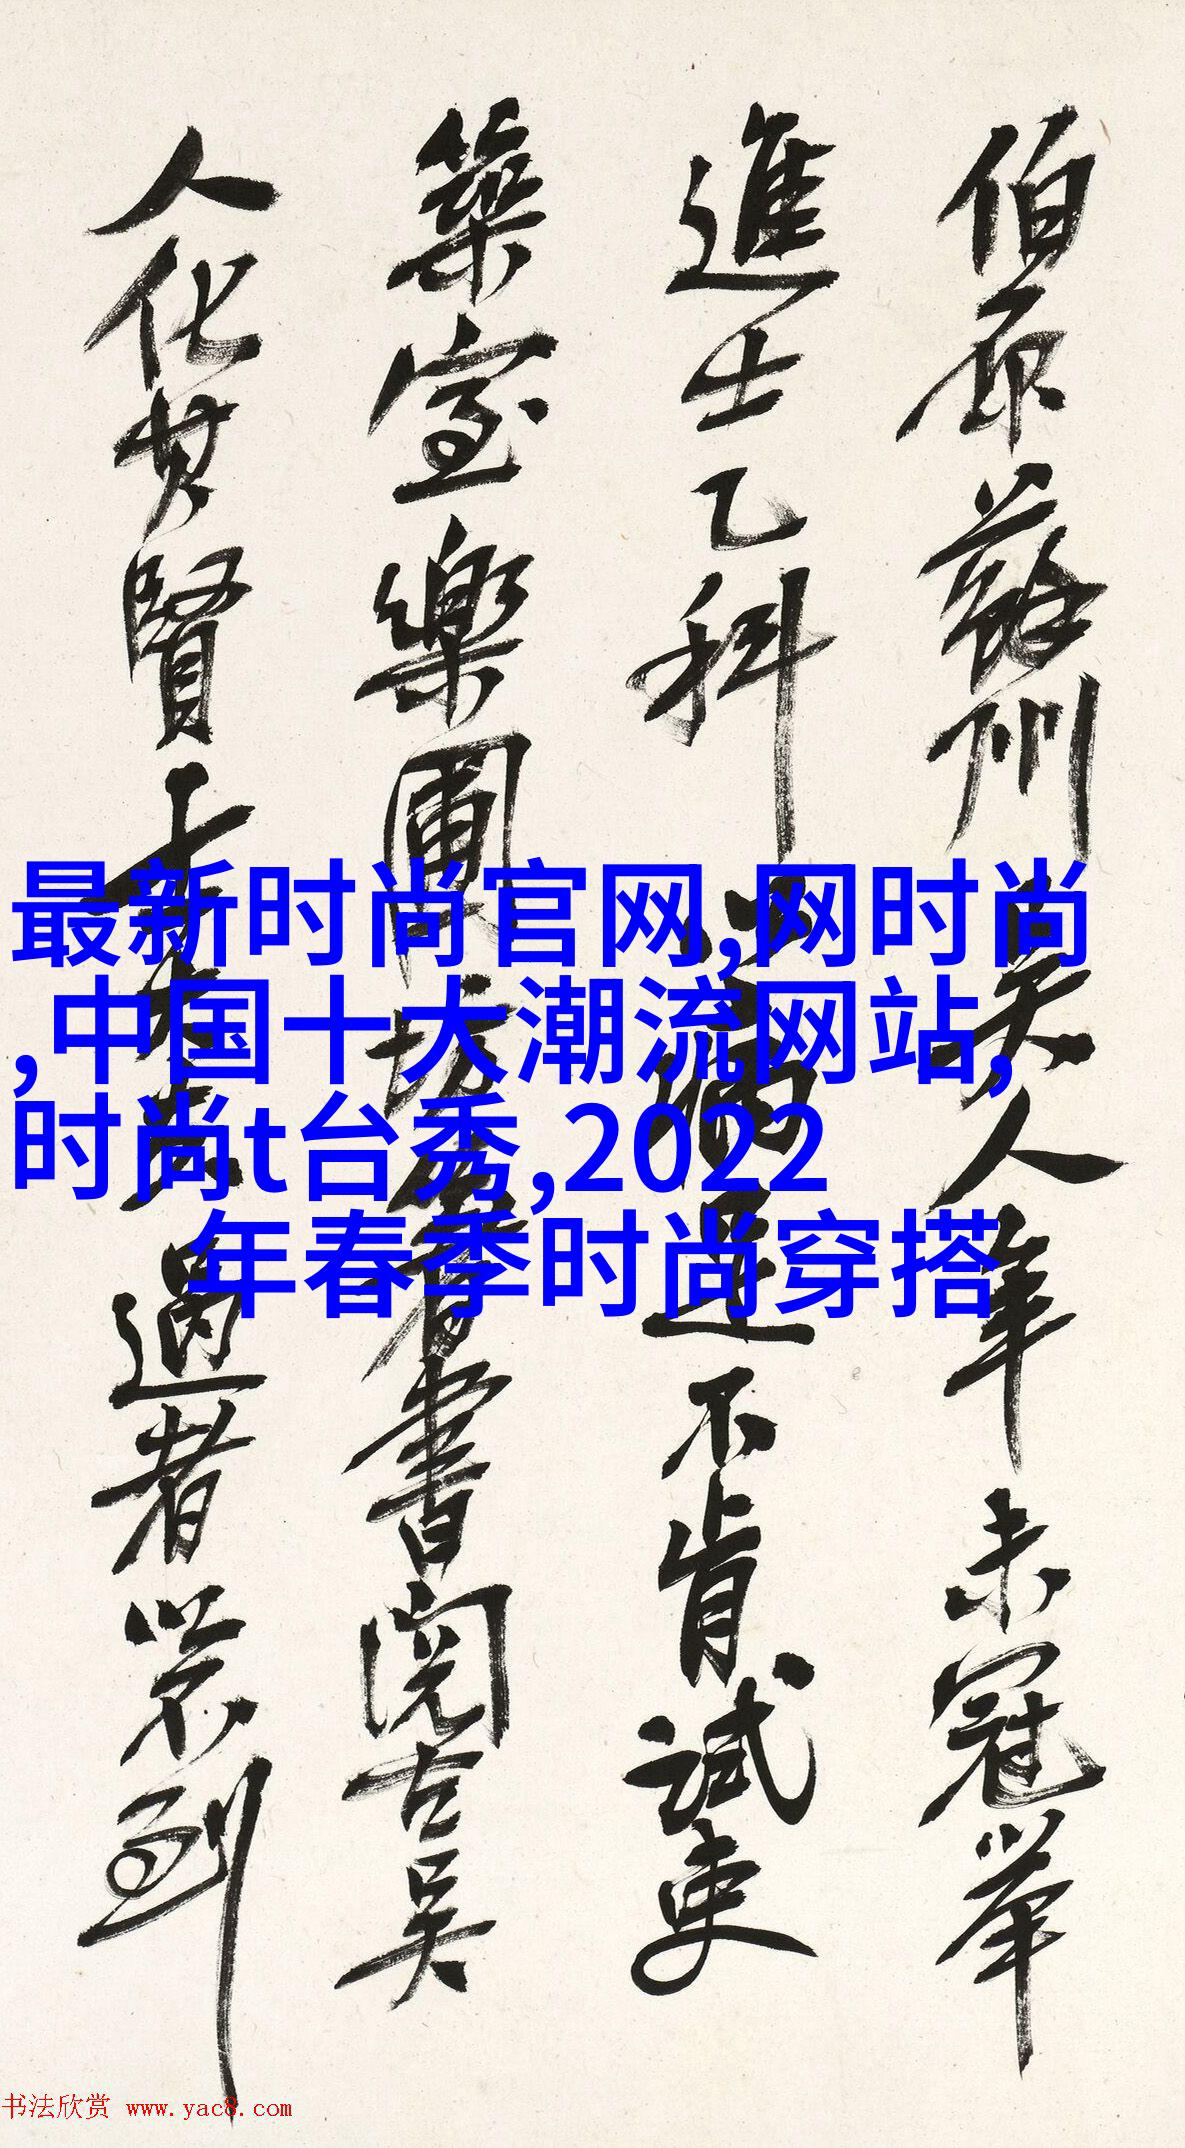 伯原蘇州吳人年未冠舉
進士乙科以病足不肯試吏
築室樂圃坊著書閱古吳
人化其賢士大夫過者以不到
最新时尚官网,网时尚
,中国十大潮流网站,
时尚t台秀,2022
年春季时尚穿搭
书法欣赏 www.yac8.com